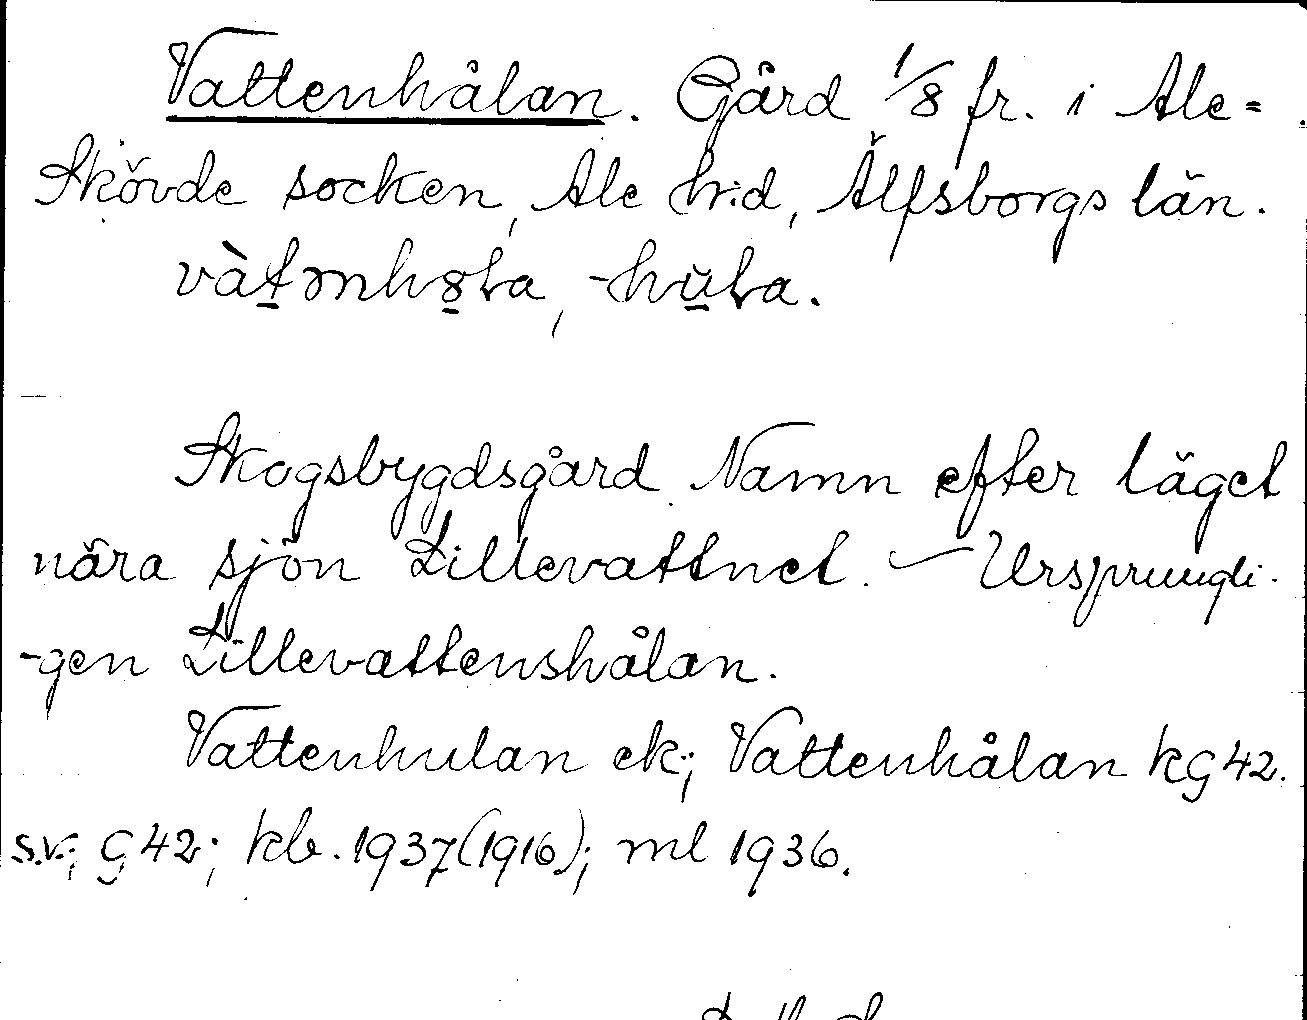 Vattenhålan. Gård 1/8 fr. i Ale=
Skövde socken, Ale h:d, Älfsborgs län.
vàt̠ənho̠la, -hu̠la.
Skogsbygdsgård. Namn efter läget
nära sjön Lillevattnet. — Ursprungli-
-gen Lillevattenshålan.
Vattenhulan ek; Vattenhålan kg 42.
s.v.; G 42; kb. 1937 (1916); ml 1936.